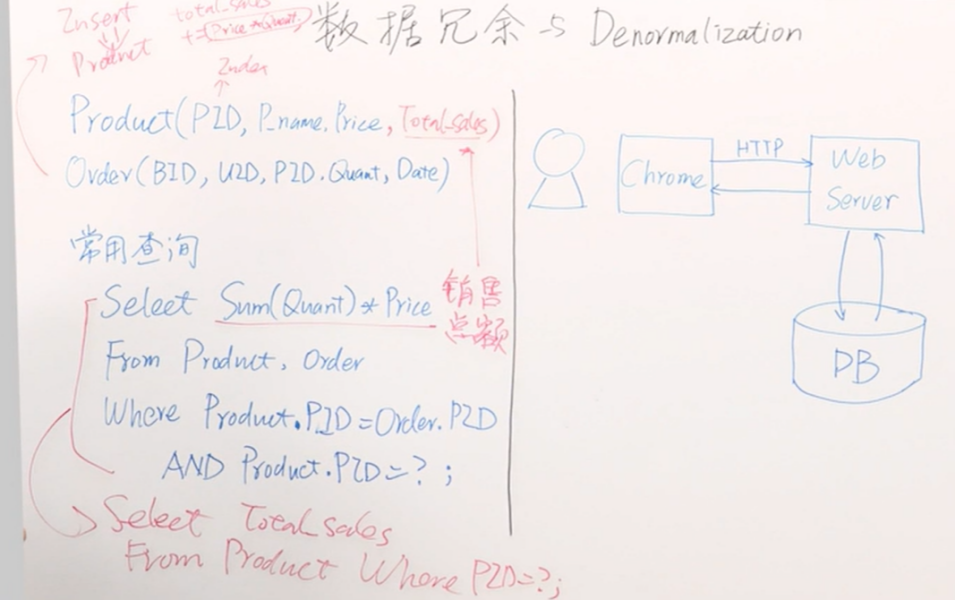 Insert
Product
total_sales
+=(Price*Quant)
数据冗余与 Denormalization
Index
Product(PID, P_name, Price, Total_sales)
Order(BID, UID, PID, Quant, Date)
常用查询
Select Sum(Quant)*Price
From Product, Order
Where Product.PID=Order.PID
AND Product.PID=?;
销售
总额
Select Total_sales
From Product Where PID=?;
Chrome
HTTP
Web
Server
DB